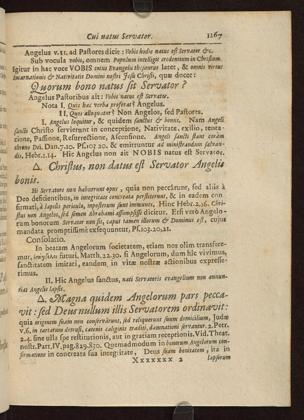 Cui natus Servator. 1267
Angelus v. 11. ad Pastores dicit: Vobis hodie natus est Servator &c.
Sub vocula vobis, omnem Populum intelligit credentium in Christum.
Igitur in hac voce VOBIS totius Evangelii thesaurus latet, & omnis virtus
Incarnationis & Nativitatis Domini nostri Jesu Christi, quæ docet:
Quorum bono natus sit Servator?
Angelus Pastoribus ait: Vobis natus est Servator.
Nota I. Quis hæc verba proferat? Angelus.
II. Quos alloquatur? Non Angelos, sed Pastores.
I. Angelus loquitur, & quidem sanctus & bonus. Nam Angeli
sancti Christo servierunt in conceptione, Nativitate, exilio, tenta-
tione, Passione, Resurrectione, Ascensione. Angeli sancti stant coram
throno Dei. Dan. 7. 10. Ps. 103 20. & emittuntur ad ministrandum salvan-
do. Hebr. 1. 14. Hic Angelus non ait NOBIS natus est Servator.
Δ. Christus, non datus est Servator Angelis
bonis.
Hi Servatore non habuerunt opus, quia non peccârunt, sed aliis à
Deo desciscentibus, in integritate concreata perstiterunt, & in eadem con-
firmati, à lapsûs periculo, impossunt sunt immunes. Hinc Hebr. 2. 16. Chri-
stus non Angelos, sed semen Abrahami assumpsisse dicitur. Est verò Angelo-
rum bonorum Servator non sis, caput tamen illorum & Dominus est, cujus
mandata promptissimè exsequuntur, Ps. 103. 20, 21.
Consolatio.
In beatam Angelorum societatem, etiam nos olim transfere-
mur, futuri. Matth. 22. 30. si Angelorum, dum hîc vivimus,
sanctitatem imitati, eandem in vitæ nostræ actionibus expresse-
rimus.
II. Hic Angelus sanctus, nati Servatoris evangelium non annun-
tiat Angelis lapsis.
Δ. Magna quidem Angelorum pars pecca-
vit: sed Deus nullum illis Servatorem ordinavit:
quia originem suam non conservârunt, sed reliquerunt suum domicilium, Judæ
v. 6. in tartarum detrusi, catenis caliginis traditi, damnationi servantur. 2. Petr.
2. 4. sine ulla spe restitutionis, aut in gratiam receptionis. Vid. Theat.
nostr. Part. IV. pag. 829. 830. Quemadmodum in bonorum Angelorum con-
firmatione in concreata sua integritate, Deus suam bonitatem, ita in
Xxxxxxx 2 lapsorum